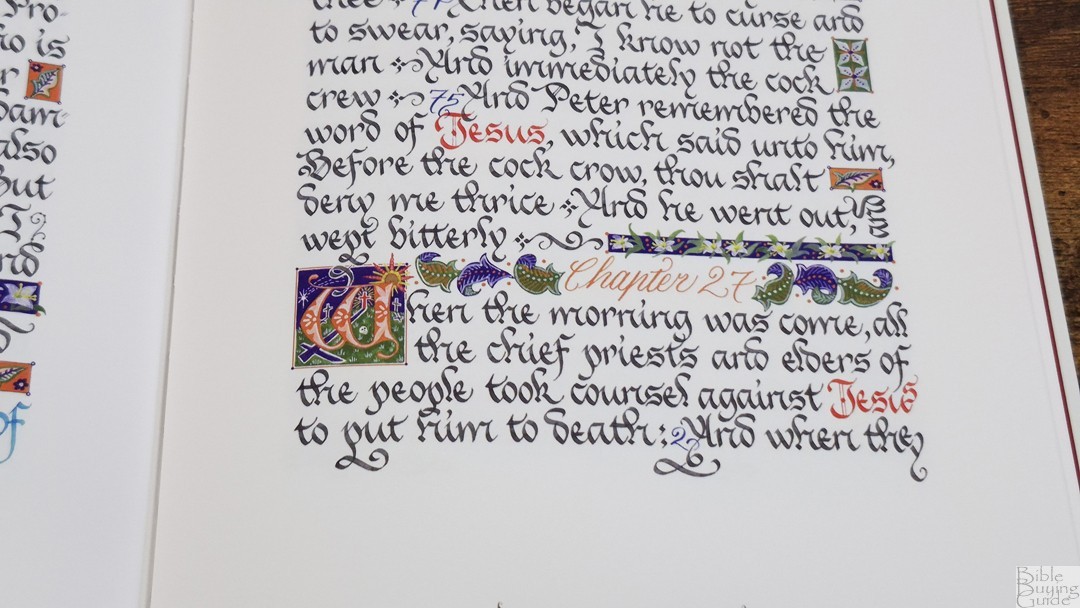 Pro-
is
r
dam-
also
But
T 2
nd
T
of
thee 74 Then began he to curse and
to swear, saying, I know not the
man And immediately the cock
crew 75 And Peter remembered the
word of Jesus, which said unto him,
Before the cock crow, thou shalt
deny me thrice And he went out,
wept bitterly
Chapter 27
When the morning was come, all
the chief priests and elders of
the people took counsel against Jesus
to put him to death: 2 And when they
Bible
Buying
Guide